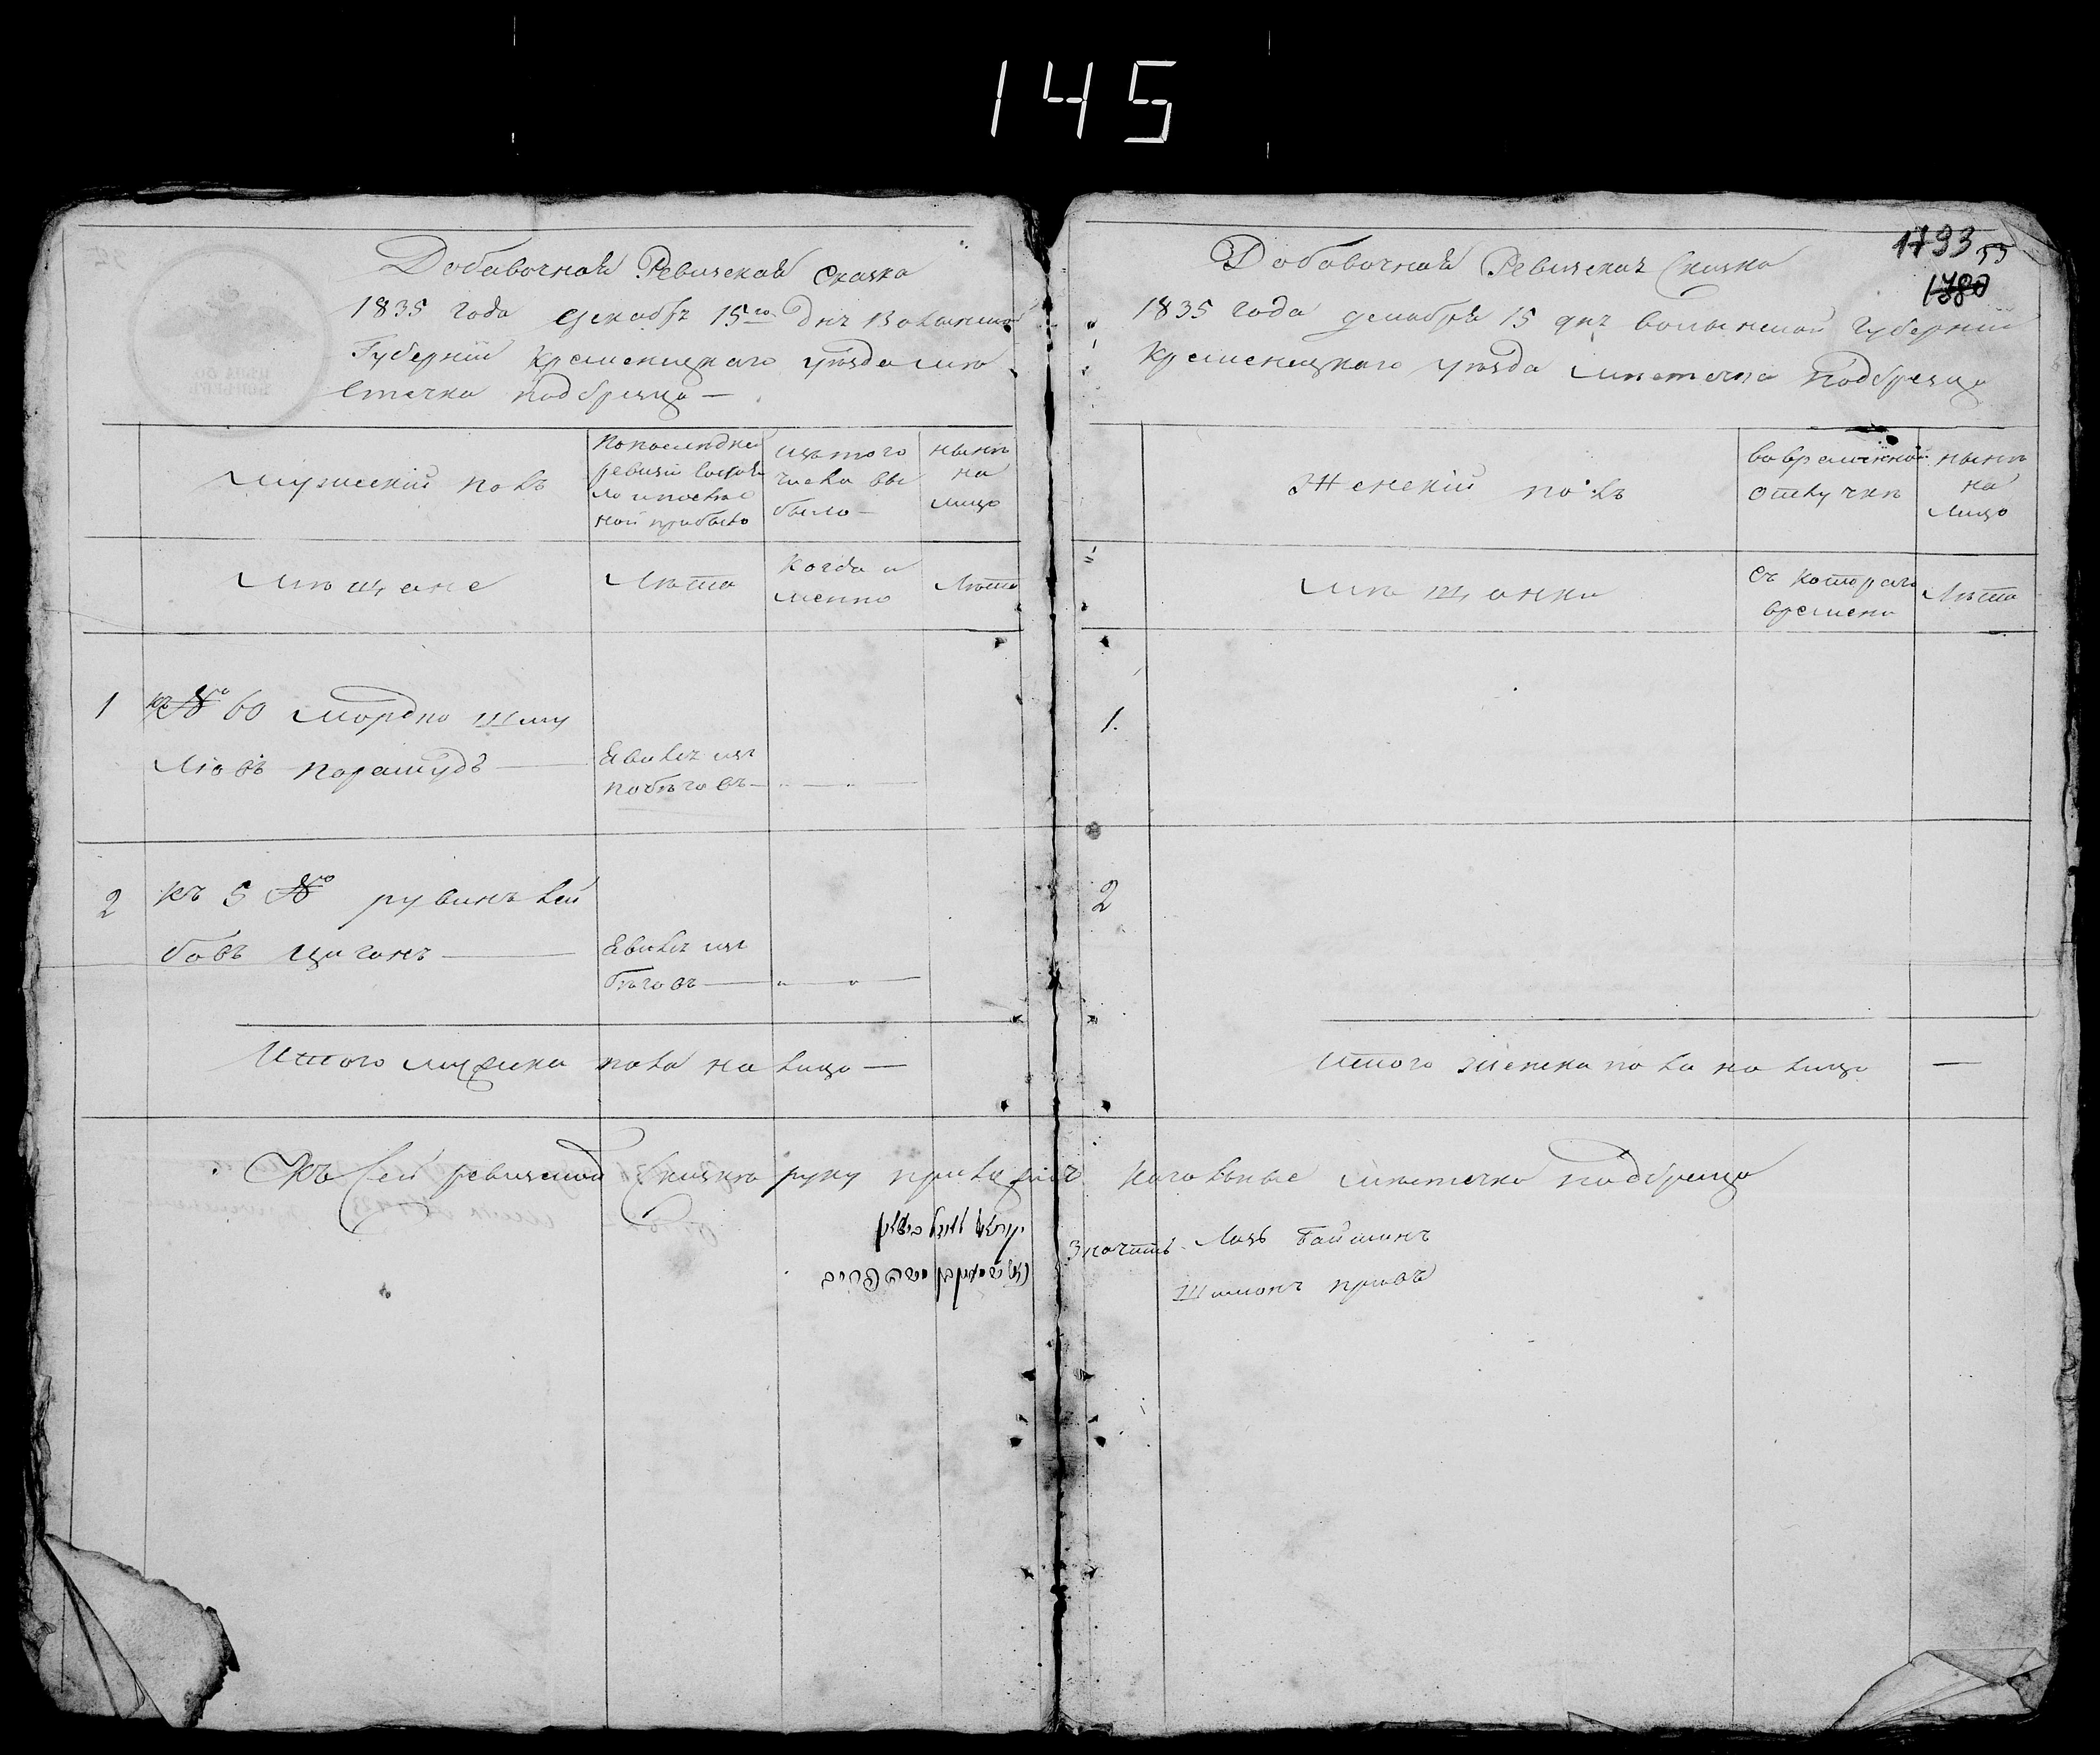 145
Добавочная Ревизская Сказка
1835 года Декабря 15го дня Волынской
Губернии Кременецкаго уѣзда мѣ
стечка Подбрезца —
мужеский полъ
По последней
ревизи состоя
ло и после
ной прибыло
изъ того
числа вы
было —
нынѣ
на
лицо
мѣщане
Лѣта
когда и
менно
Лѣта
1 къ № 60 Мордко Шму
Лювъ Парамудъ —
Евился изъ
побѣговъ —
2 къ 5 № Рувинъ Лей
бовъ Циганъ —
Евился изъ
бѣговъ —
Итого мужска пола на лицо —
1793
55
1780
Добавочная Ревизская Сказка
1835 года декабря 15 дня Волынской Губернии
Кременецкаго уѣзда мѣстечка Подбрезца
Женский полъ
во временной
отлучкѣ
нынѣ
на
лицо
мѣщанки
съ котораго
времени
Лѣта
1.
2
Итого женска пола на лицо —
Къ сей ревизской сказкѣ руку приложили Кагальные мѣстечка Подбрезца
Значитъ Лазь Гайшинъ
Шимонъ